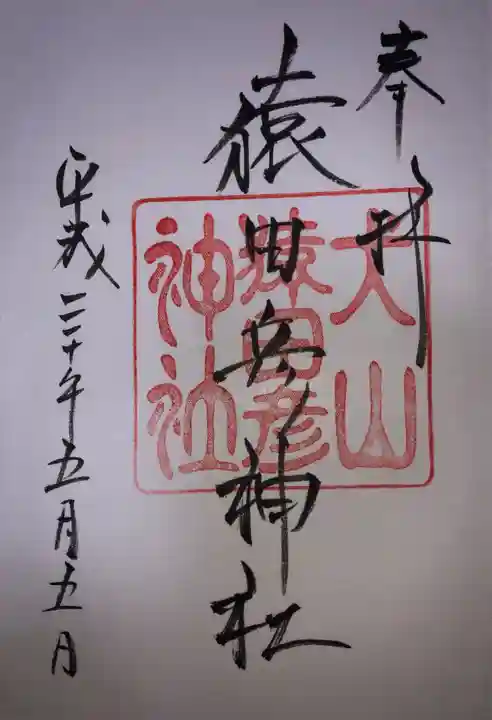 奉拝
猿田彦神社
犬山
猿田彦
神社
平成三十年五月五日